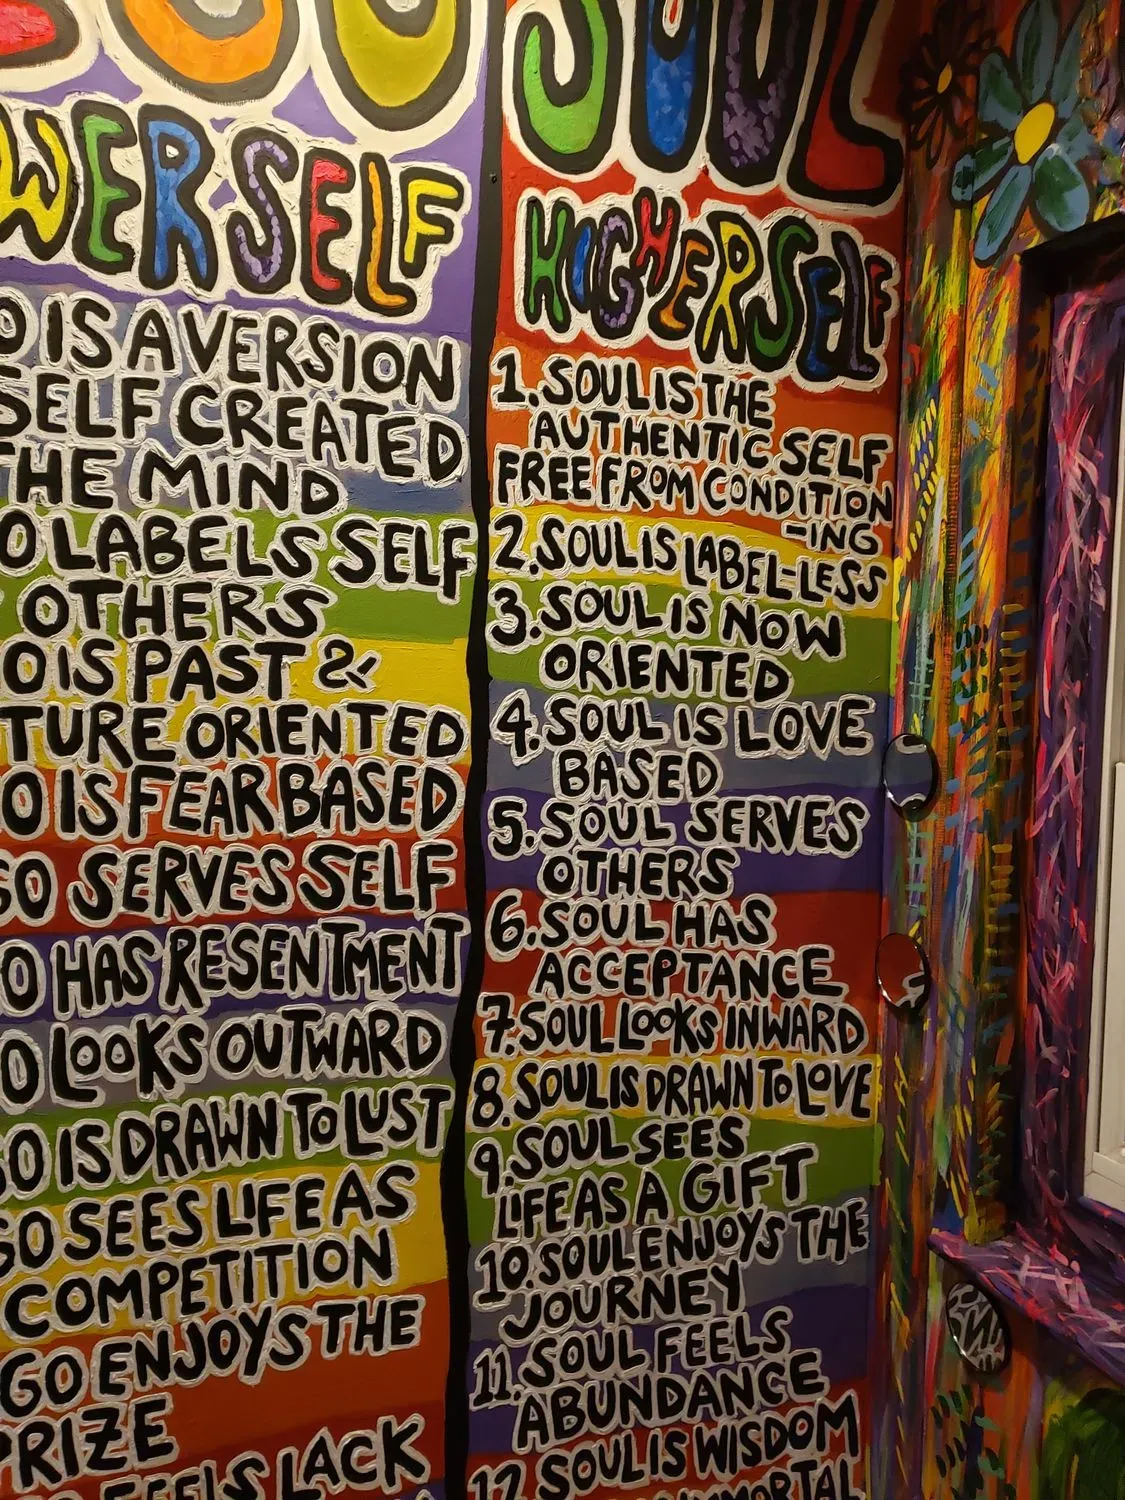 SOUL
SELF
IS A VERSION
SELF CREATED
THE MIND
LABELS SELF
OTHERS
IS PAST &
ORIENTED
IS FEAR BASED
SERVES SELF
HAS RESENTMENT
LOOKS OUTWARD
IS DRAWN TO LUST
SEES LIFE AS
COMPETITION
ENJOYS THE
PRIZE
FEELS LACK
HIGHER SELF
1. SOUL IS THE
AUTHENTIC SELF
FREE FROM CONDITION
-ING
2. SOUL IS LABEL-LESS
3. SOUL IS NOW
ORIENTED
4. SOUL IS LOVE
BASED
5. SOUL SERVES
OTHERS
6. SOUL HAS
ACCEPTANCE
7. SOUL LOOKS INWARD
8. SOUL IS DRAWN TO LOVE
9. SOUL SEES
LIFE AS A GIFT
10. SOUL ENJOYS THE
JOURNEY
11. SOUL FEELS
ABUNDANCE
12 SOUL IS WISDOM